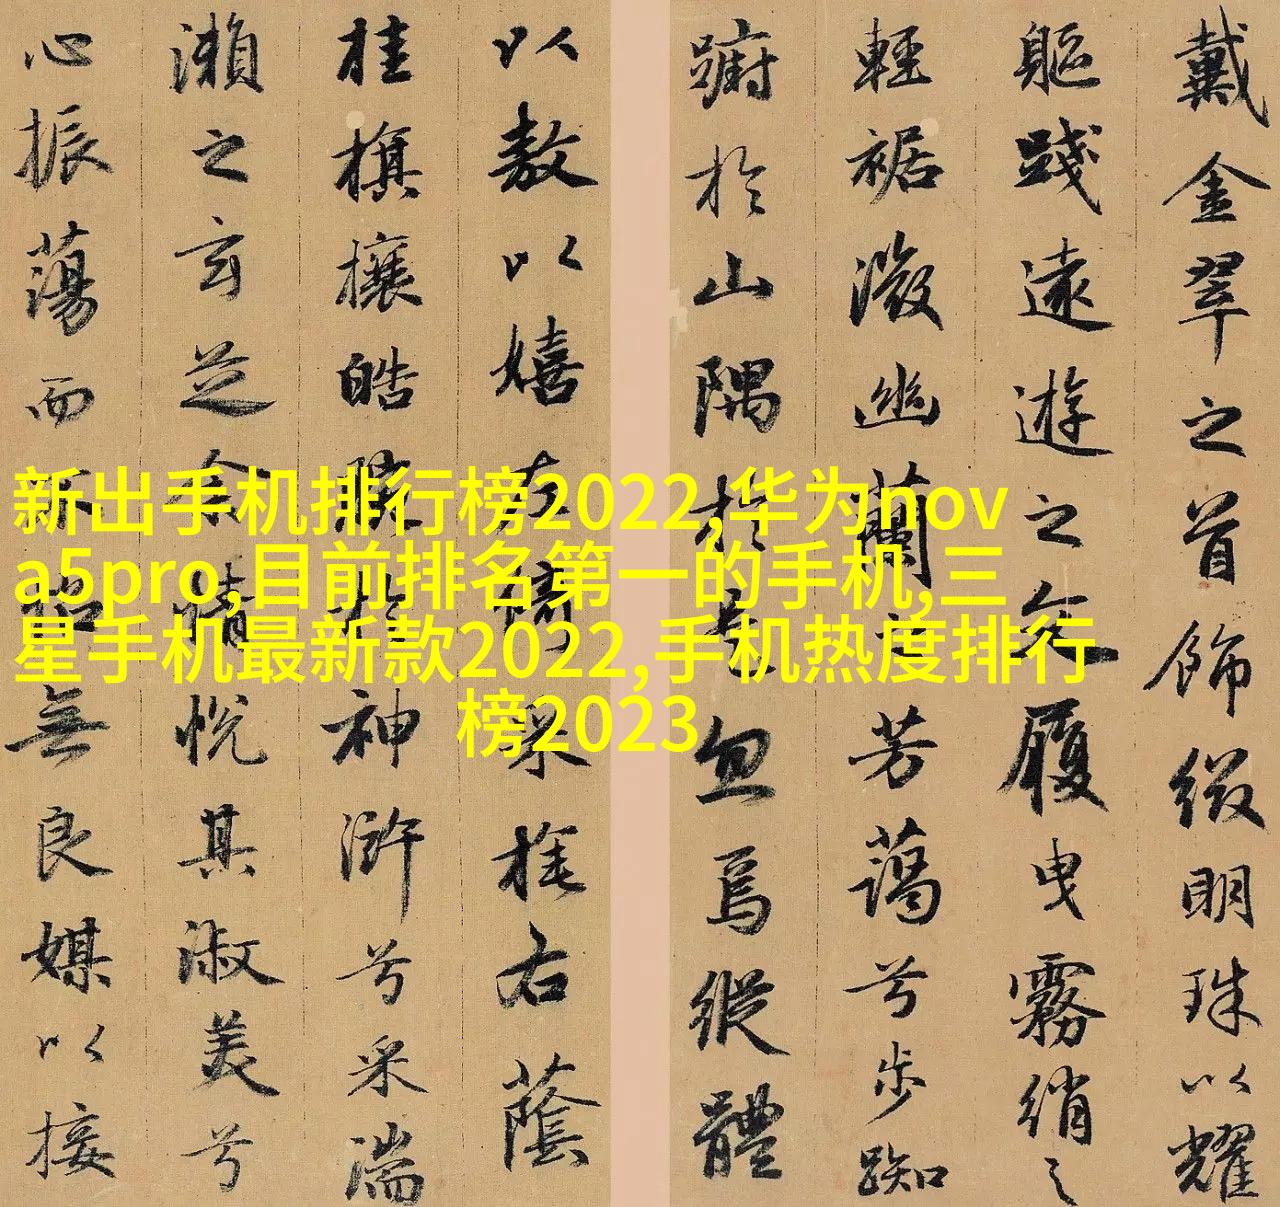 新出手机排行榜2022,华为nov
a5pro,目前排名第一的手机,三
星手机最新款2022,手机热度排行
榜2023
戴金翠之首飾綴明珠以耀
軀踐遠遊之文履曳霧綃之
輕裾微幽蘭之芳藹兮步踟
躕於山隅於是忽焉縱體
以敖以嬉左倚采旄右蔭
桂旗攘皓腕於神滸兮采湍
瀨之玄芝余情悅其淑美兮
心振蕩而不怡無良媒以接